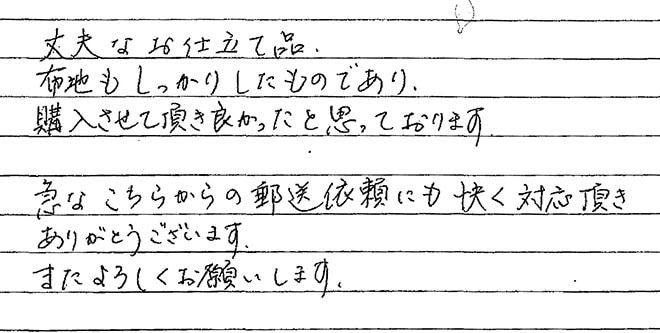 丈夫なお仕立て品.
布地もしっかりしたものであり.
購入させて頂き良かったと思っております.
急なこちらからの郵送依頼にも快く対応頂き
ありがとうございます.
またよろしくお願いします.